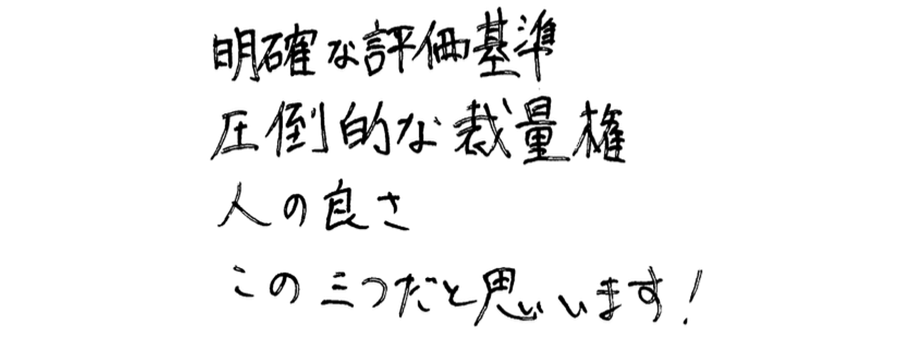 明確な評価基準
圧倒的な裁量権
人の良さ
この三つだと思います！